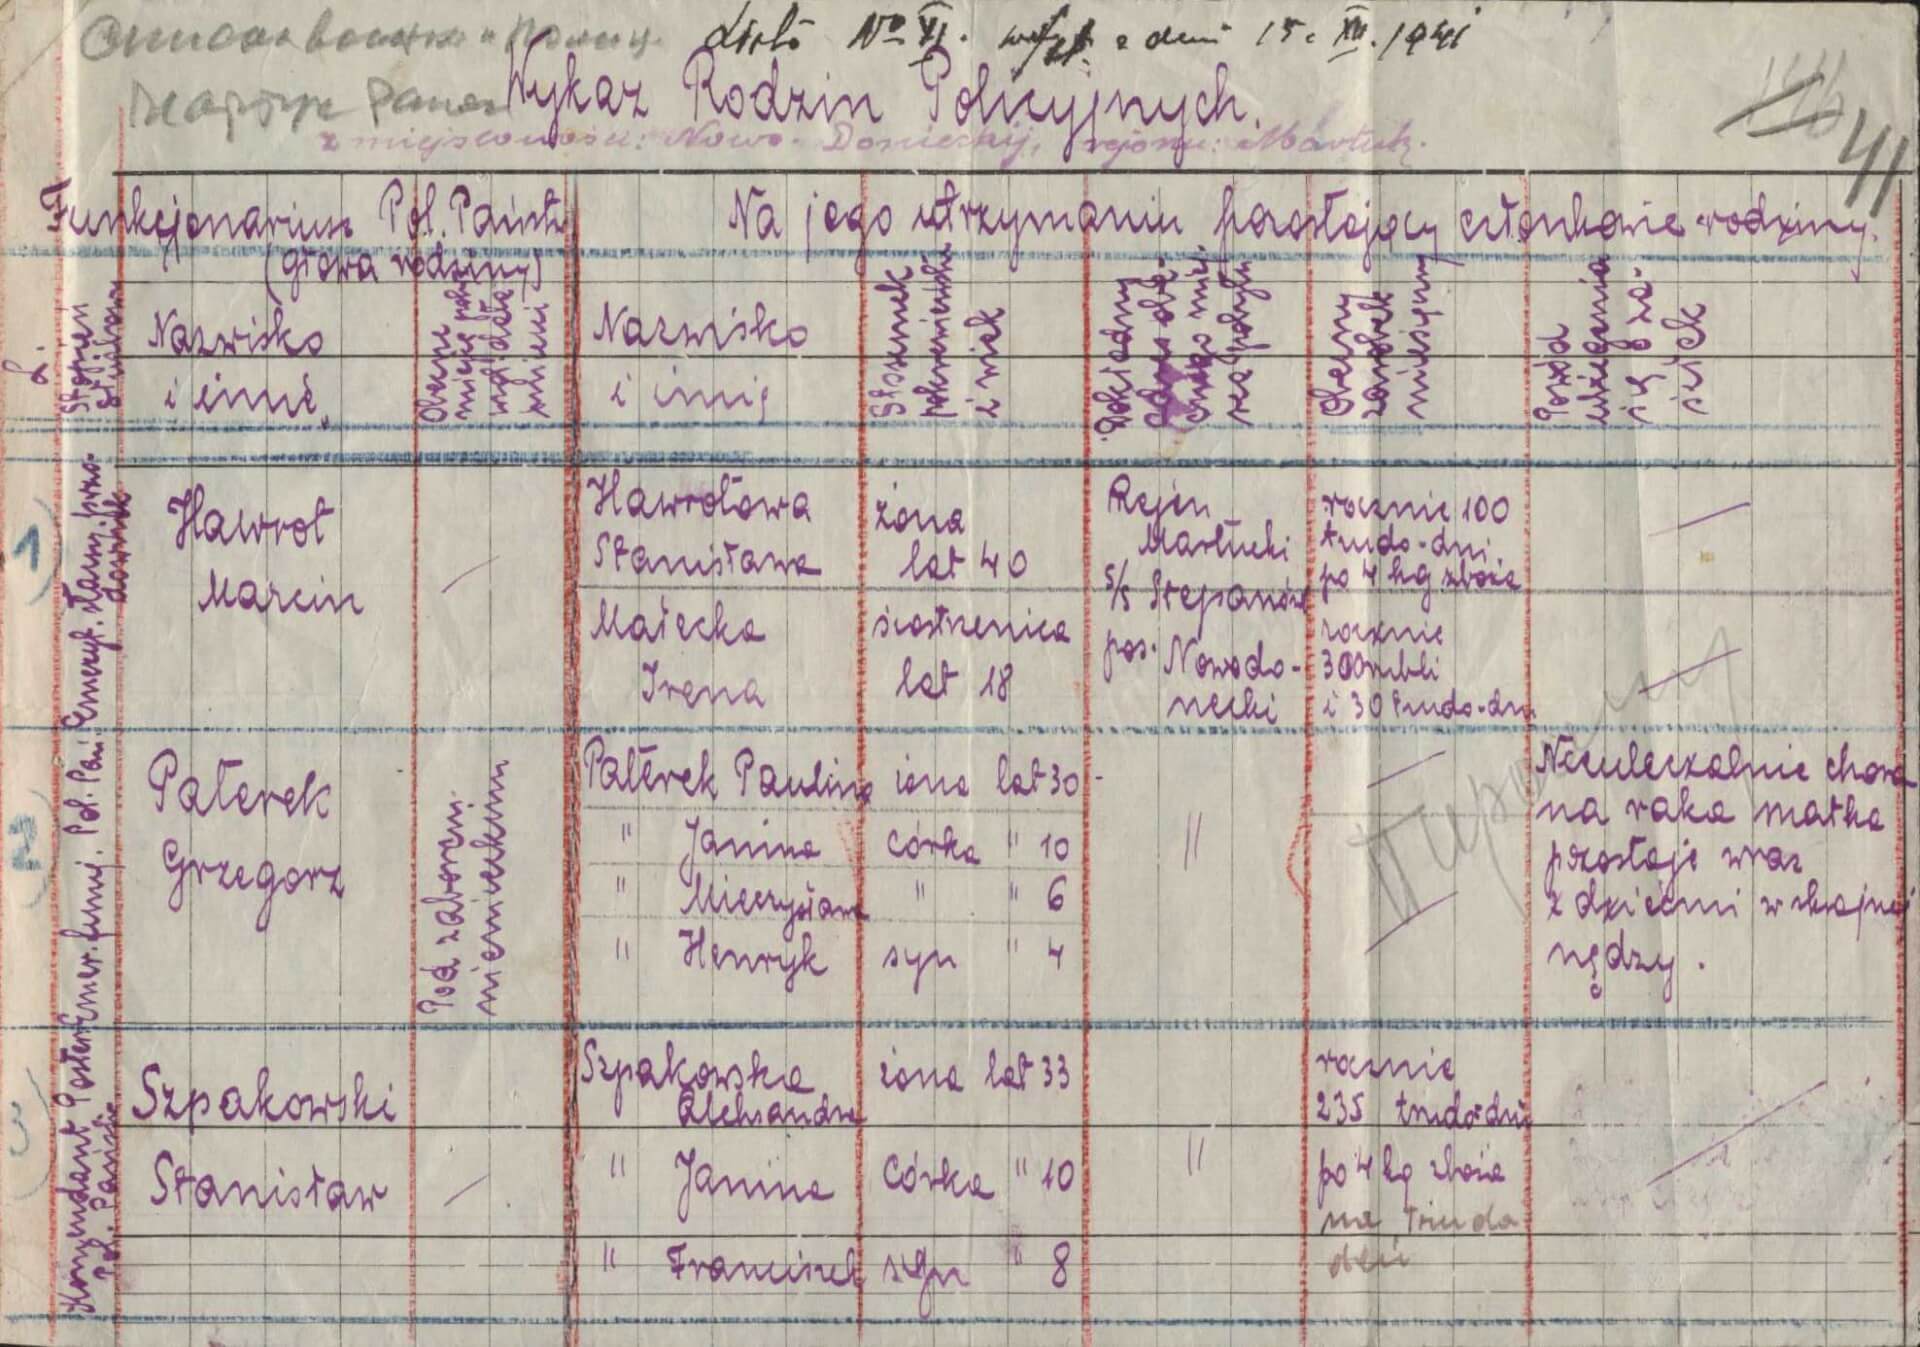 Lista No XI. z dnia 15. XII. 1941
Wykaz Rodzin Policyjnych.
z miejscowości: Nowo-Donieckij, rejonu: Martuk.
41
Funkcjonariusz Pol. Państw.
(głowa rodziny)
Na jego utrzymaniu pozostający członkowie rodziny.
L.
Stopień służbowy
Nazwisko
i imię
Obecne miejsce
Nazwisko
i imię
Stosunek pokrewieństwa i wiek
Dokładny adres
Obecny zarobek miesięczny
Powód ubiegania się o zasiłek
1)
Emeryt. starszy przodownik
Hawrot
Marcin
Hawrotowa
Stanisława
żona
lat 40
Małecka
Irena
siostrzenica
lat 18
Rejon
Martucki
s/s Stepanów
pos. Nowodo-
necki
rocznie 100
trudo-dni
po 4 kg zboża
rocznie
300 rubli
i 30 trudo-dni
2)
Poster. emer. funkcj. Pol. Pań.
Paterek
Grzegorz
Pod zaborem
niemieckim
Paterek Paulina żona lat 30
" Janina córka " 10
" Mieczysława " " 6
" Henryk syn " 4
"
Nieuleczalnie chora
na raka matka
pozostaje wraz
z dziećmi w skrajnej
nędzy.
3)
Komendant
Pol. Państw.
Szpakowski
Stanisław
Szpakowska
Aleksandra
żona lat 33
" Janina córka " 10
" Franciszek syn " 8
"
rocznie
235 trudo-dni
po 4 kg zboża
na trudo
deń